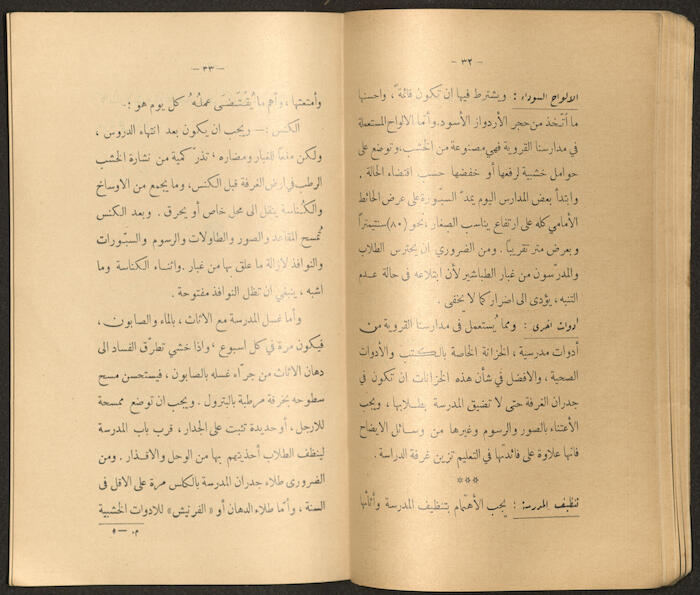 — ٣٢ —
الألواح السوداء : ويشترط فيها ان تكون قائمة ، واحسنها
ما اُتّخذ من حجر الأردواز الأسود. وأمّا الالواح المستعملة
في مدارسنا القروية فهي مصنوعة من الخشب، وتوضع على
حوامل خشبية لرفعها أو خفضها حسب اقتضاء الحالة .
وابتدأ بعض المدارس اليوم يمدّ السبّورة على عرض الحائط
الأمامي كله على ارتفاع يناسب الصغار، نحو (٨٠) سنتيمتراً
وبعرض متر تقريباً . ومن الضروري ان يحترس الطلاب
والمدرسون من غبار الطباشير لأن ابتلاعه في حالة عدم
التنبه ، يؤدى الى اضرار كما لا يخفى .
ادوات اخرى : ومما يُستعمل في مدارسنا القروية من
أدوات مدرسية ، الخزانة الخاصة بالكتب والأدوات
الصحية ، والافضل في شأن هذه الخزانات ان تكون في
جدران الغرفة حتى لا تضيق المدرسة بطلابها ، ويجب
الأعتناء بالصور والرسوم وغيرها من وسائل الايضاح
فانها علاوة على فائدتها في التعليم تزين غرفة الدراسة .
***
تنظيف المدرسة : يجب الأهتمام بتنظيف المدرسة وأثاثها
— ٣٣ —
وأمتعتها ، وأهم ما يُقتضى عمله كل يوم هو :—
الكنس :— ويجب ان يكون بعد انتهاء الدروس ،
ولكن منعاً للغبار ومضاره ، تذرّ كمية من نشارة الخشب
الرطب في ارض الغرفة قبل الكنس، وما يجمع من الاوساخ
والكُناسة ينقل الى محل خاص أو يحرق . وبعد الكنس
تُمسح المقاعد والصور والطاولات والرسوم والسبّورات
والنوافذ لازالة ما علق بها من غبار . واثناء الكناسة وما
اشبه ، ينبغي ان تظل النوافذ مفتوحة .
وأما غسل المدرسة مع الاثاث ، بالماء والصابون ،
فيكون مرة في كل اسبوع ، واذا خشي تطرّق الفساد الى
دهان الاثاث من جرّاء غسله بالصابون ، فيستحسن مسح
سطوحه بخرقة مرطبة بالبترول . ويجب ان توضع ممسحة
للارجل ، أو حديدة تثبت على الجدار ، قرب باب المدرسة
لينظف الطلاب أحذيتهم بها من الوحل والاقذار . ومن
الضرورى طلاء جدران المدرسة بالكلس مرة على الاقل في
السنة ، وأمّا طلاء الدهان أو « الفرنيش » للادوات الخشبية
م. — ٥